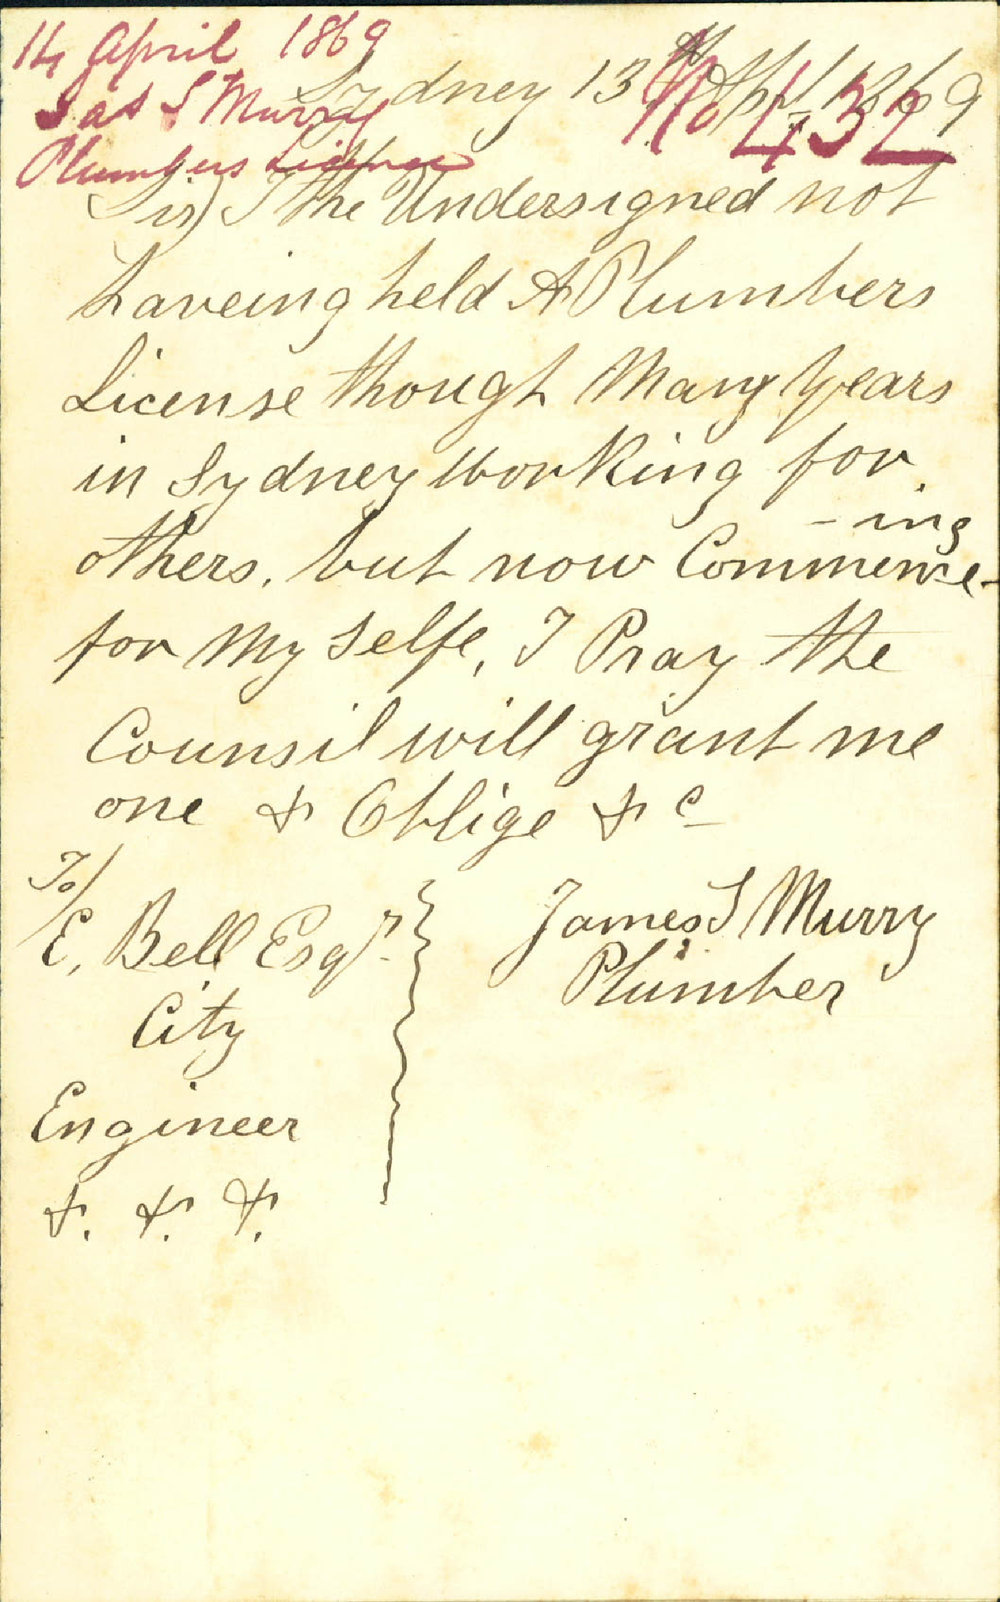 14 April 1869
Jas S Murry
Plumbers License
No 432
Sydney 13th Apl 1869
Sir) I the Undersigned not
haveing held A Plumbers
License though Many Years
in Sydney Working for
others, but now Commence-
-ing
for My Selfe, I Pray the
Counsil will grant me
one & Oblige &c
To/
E, Bell Esqr.
City
Engineer
&. &. &.
James S Murry
Plumber